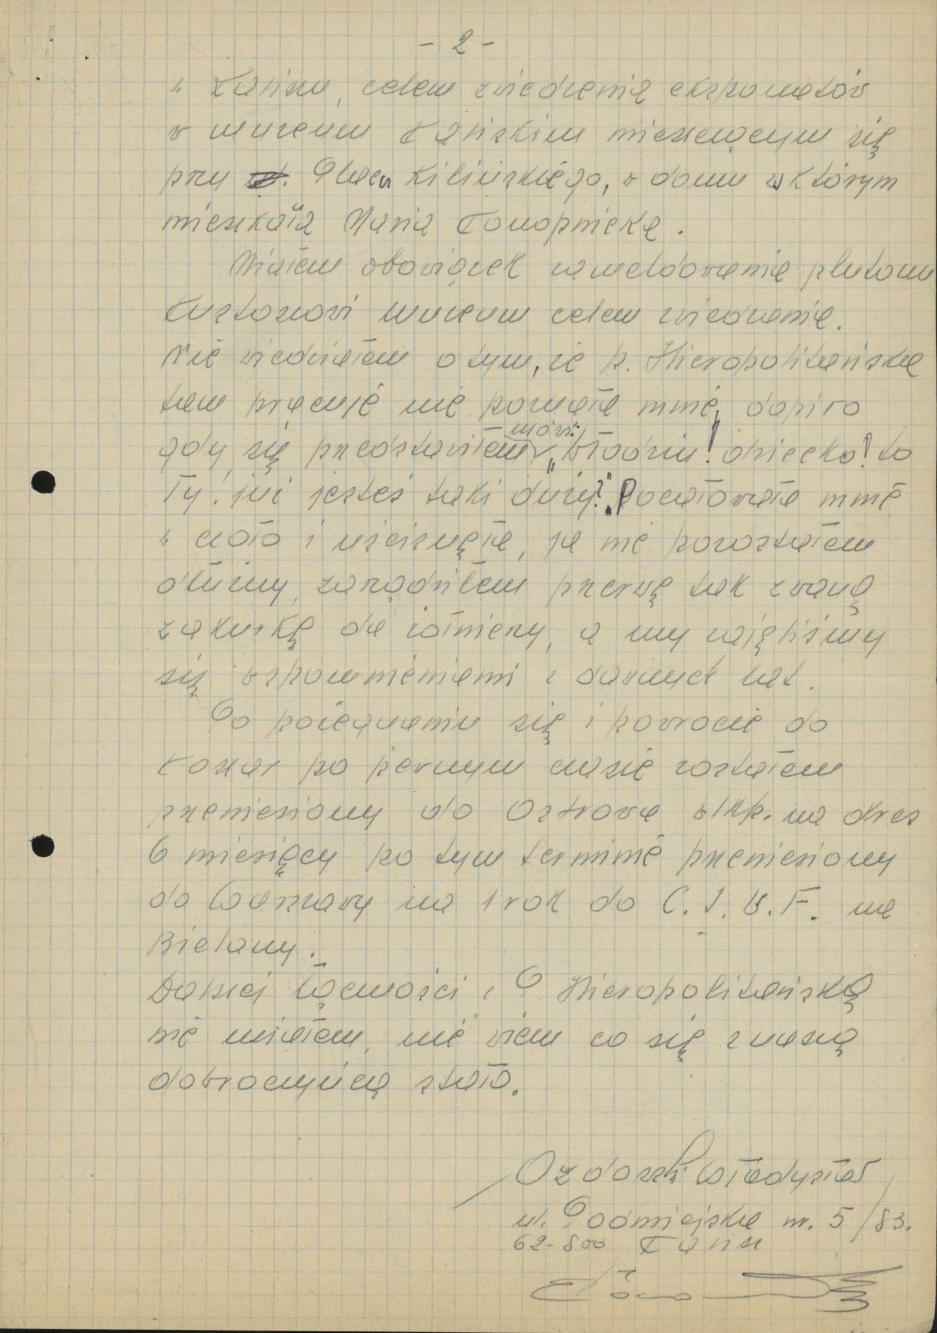 - 2 -
w Kaliszu, celem zwiedzenia eksponatów
w muzeum Kaliskim mieszczącym się
przy Placu Kilińskiego, w domu w którym
mieszkała Maria Konopnicka.
Miałem obowiązek zameldowania plutonu
kustoszowi muzeum celem zwiedzania.
Nie wiedziałem o tym, że p. Hieropolitańska
tam pracuje nie poznała mnie, dopiro
gdy się przedstawiłem mówi: „Władziu! dziecko! to
Ty! już jesteś taki duży?" Pocałowała mnie
w czoło i uścisnęła, ja nie pozostałem
dłużny, zarządziłem przerwę tak zwaną
zakurkę dla żołnierzy, a my zajęliśmy
się wspomnieniami z dawnych lat.
Po pożegnaniu się i powrocie do
koszar po pewnym czasie zostałem
przeniesiony do Ostrowa wlkp. na okres
6 miesięcy po tym terminie przeniesiony
do Warszawy na 1 rok do C.I.W.F. na
Bielany.
Dalszej łączności z P Hieropolitańską
nie miałem, nie wiem co się z naszą
dobrodziejką stało.
Władysław
ul. Podmiejska nr. 5/83.
62-800 Kalisz